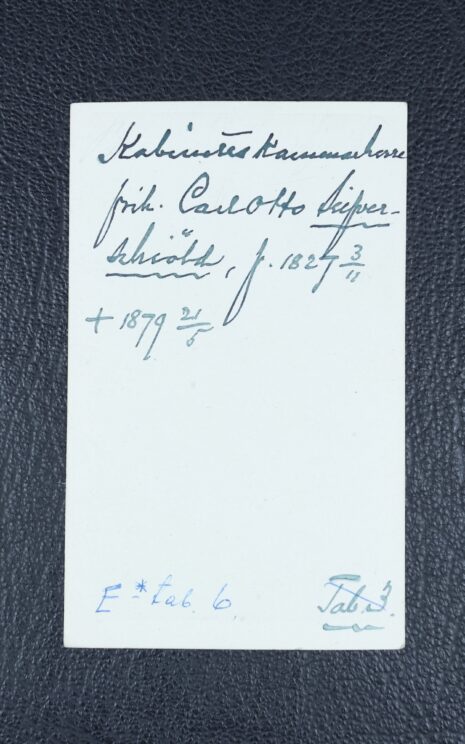 Kabinetts Kammarherre
frih. Carl Otto Seipver-
schiöld, f. 1827 3/11
+ 1879 21/5
E-* tab. 6
Tab 3.